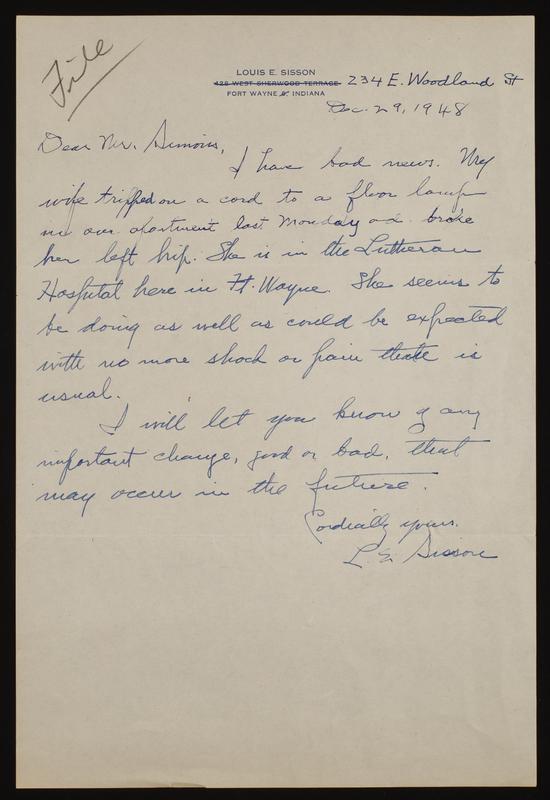 File
LOUIS E. SISSON
428 WEST SHERWOOD TERRACE 234 E. Woodland St
FORT WAYNE 6, INDIANA
Dec. 29, 1948
Dear Mr. Simons,
I have bad news. My
wife tripped on a cord to a floor lamp
in our apartment last Monday and broke
her left hip. She is in the Lutheran
Hospital here in Ft. Wayne. She seems to
be doing as well as could be expected
with no more shock or pain than is
usual.
I will let you know of any
important change, good or bad, that
may occur in the future.
Cordially yours.
L. E. Sisson